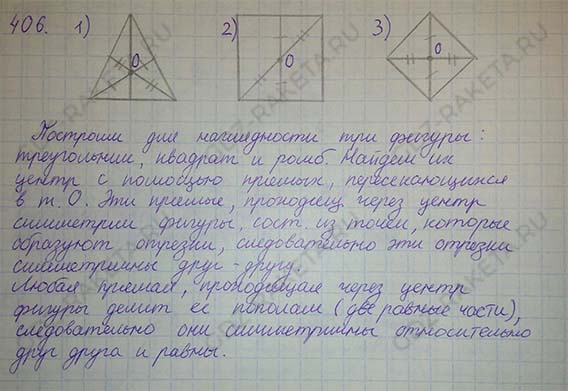 406. 1) 2) 3)
O O O
Построим для наглядности три фигуры:
треугольник, квадрат и ромб. Найдем их
центр с помощью прямых, пересекающихся
в т. О. Эти прямые, проходящ. через центр
симметрии фигуры, сост. из точек, которые
образуют отрезки, следовательно эти отрезки
симметричны друг-другу.
Любая прямая, проходящая через центр
фигуры делит её пополам (две равные части),
следовательно они симметричны относительно
друг друга и равны.
GDZ-RAKETA.RU